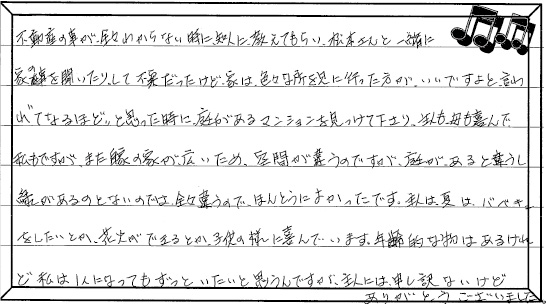 不動産の事が、全々わからない時に知人に教えてもらい、松本さんと一緒に
家の事を聞いたり、して不安だったけど、家は、色々な所を見に行った方が、いいですよと、言わ
れてなるほど、と思った時に、庭があるマンションを見つけて下さり、主人も、母も喜んで、
私もですが、また嫁の家が、広いため、空間が違うのですが、庭が、あると違うし
緑があるのとないのでは、全々違うので、ほんとうによかったです。主人は、夏は、バーベキュー
をしたいとか、花火ができるとか、子供の様に喜んでいます。年齢的な物はあるけれ
ど私は1人になってもずっといたいと思うんですが、主人には、申し訳ないけど
ありがとうございました